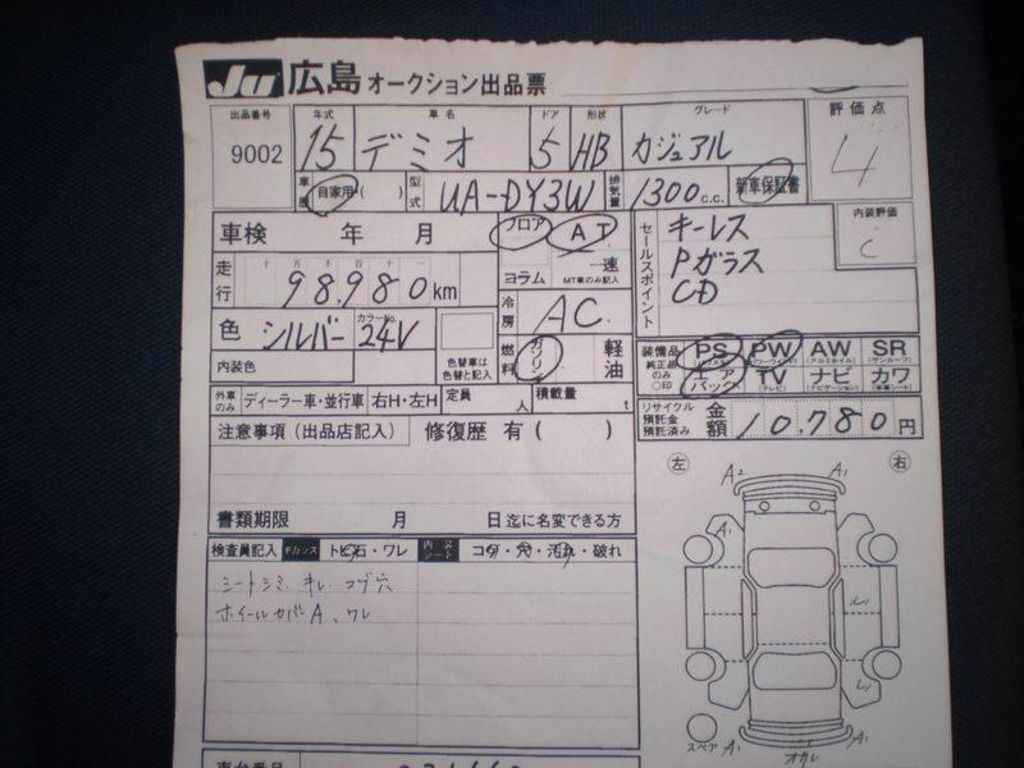 JU 広島 オークション出品票
出品番号 年式 車名 ドア 形状 グレード 評価点
9002 15 デミオ 5 HB カジュアル 4
車歴 自家用・( ) 型式 UA-DY3W 排気量 1300 c.c. 新車保証書
車検 年 月 フロア AT セールスポイント キーレス 内装評価
コラム 速 MT車のみ記入 Pガラス C
走行 十 万 千 百 十 一 98,980 km CD
冷房 AC
色 シルバー カラーNo. 24V 燃料 ガソリン 軽油
内装色 色替車は色替と記入
装備品 純正品のみ PS PW AW SR
エアバック TV ナビ カワ
外車のみ ディーラー車・並行車 右H・左H 定員 人 積載量 t
リサイクル預託金預託済み 金額 10,780 円
注意事項(出品店記入) 修復歴 有( )
左 右
A2 A1
書類期限 月 日迄に名変できる方
検査員記入 Fガラス トビ石・ワレ 内装シート コゲ・穴・汚れ・破れ
A1
シートシミ、キレ、コゲ穴
ホイールカバーA、ワレ
スペア A1 A1
車台番号